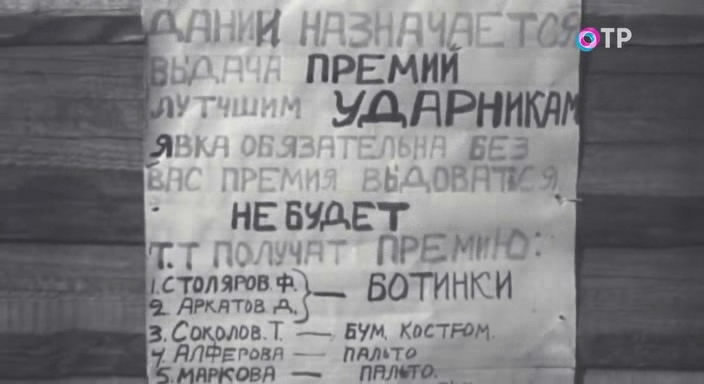 ДАНИИ НАЗНАЧАЕТСЯ
ОТР
ВЫДАЧА ПРЕМИЙ
ЛУТЧШИМ УДАРНИКАМ
ЯВКА ОБЯЗАТЕЛЬНА БЕЗ
ВАС ПРЕМИЯ ВЫДОВАТЬСЯ
НЕ БУДЕТ
Т.Т ПОЛУЧАТ ПРЕМИЮ:
1. СТОЛЯРОВ. Ф.
2. АРКАТОВ. Д. — БОТИНКИ
3. СОКОЛОВ. Т. — БУМ. КОСТЮМ.
4. АЛФЕРОВА — ПАЛЬТО
5. МАРКОВА — ПАЛЬТО.